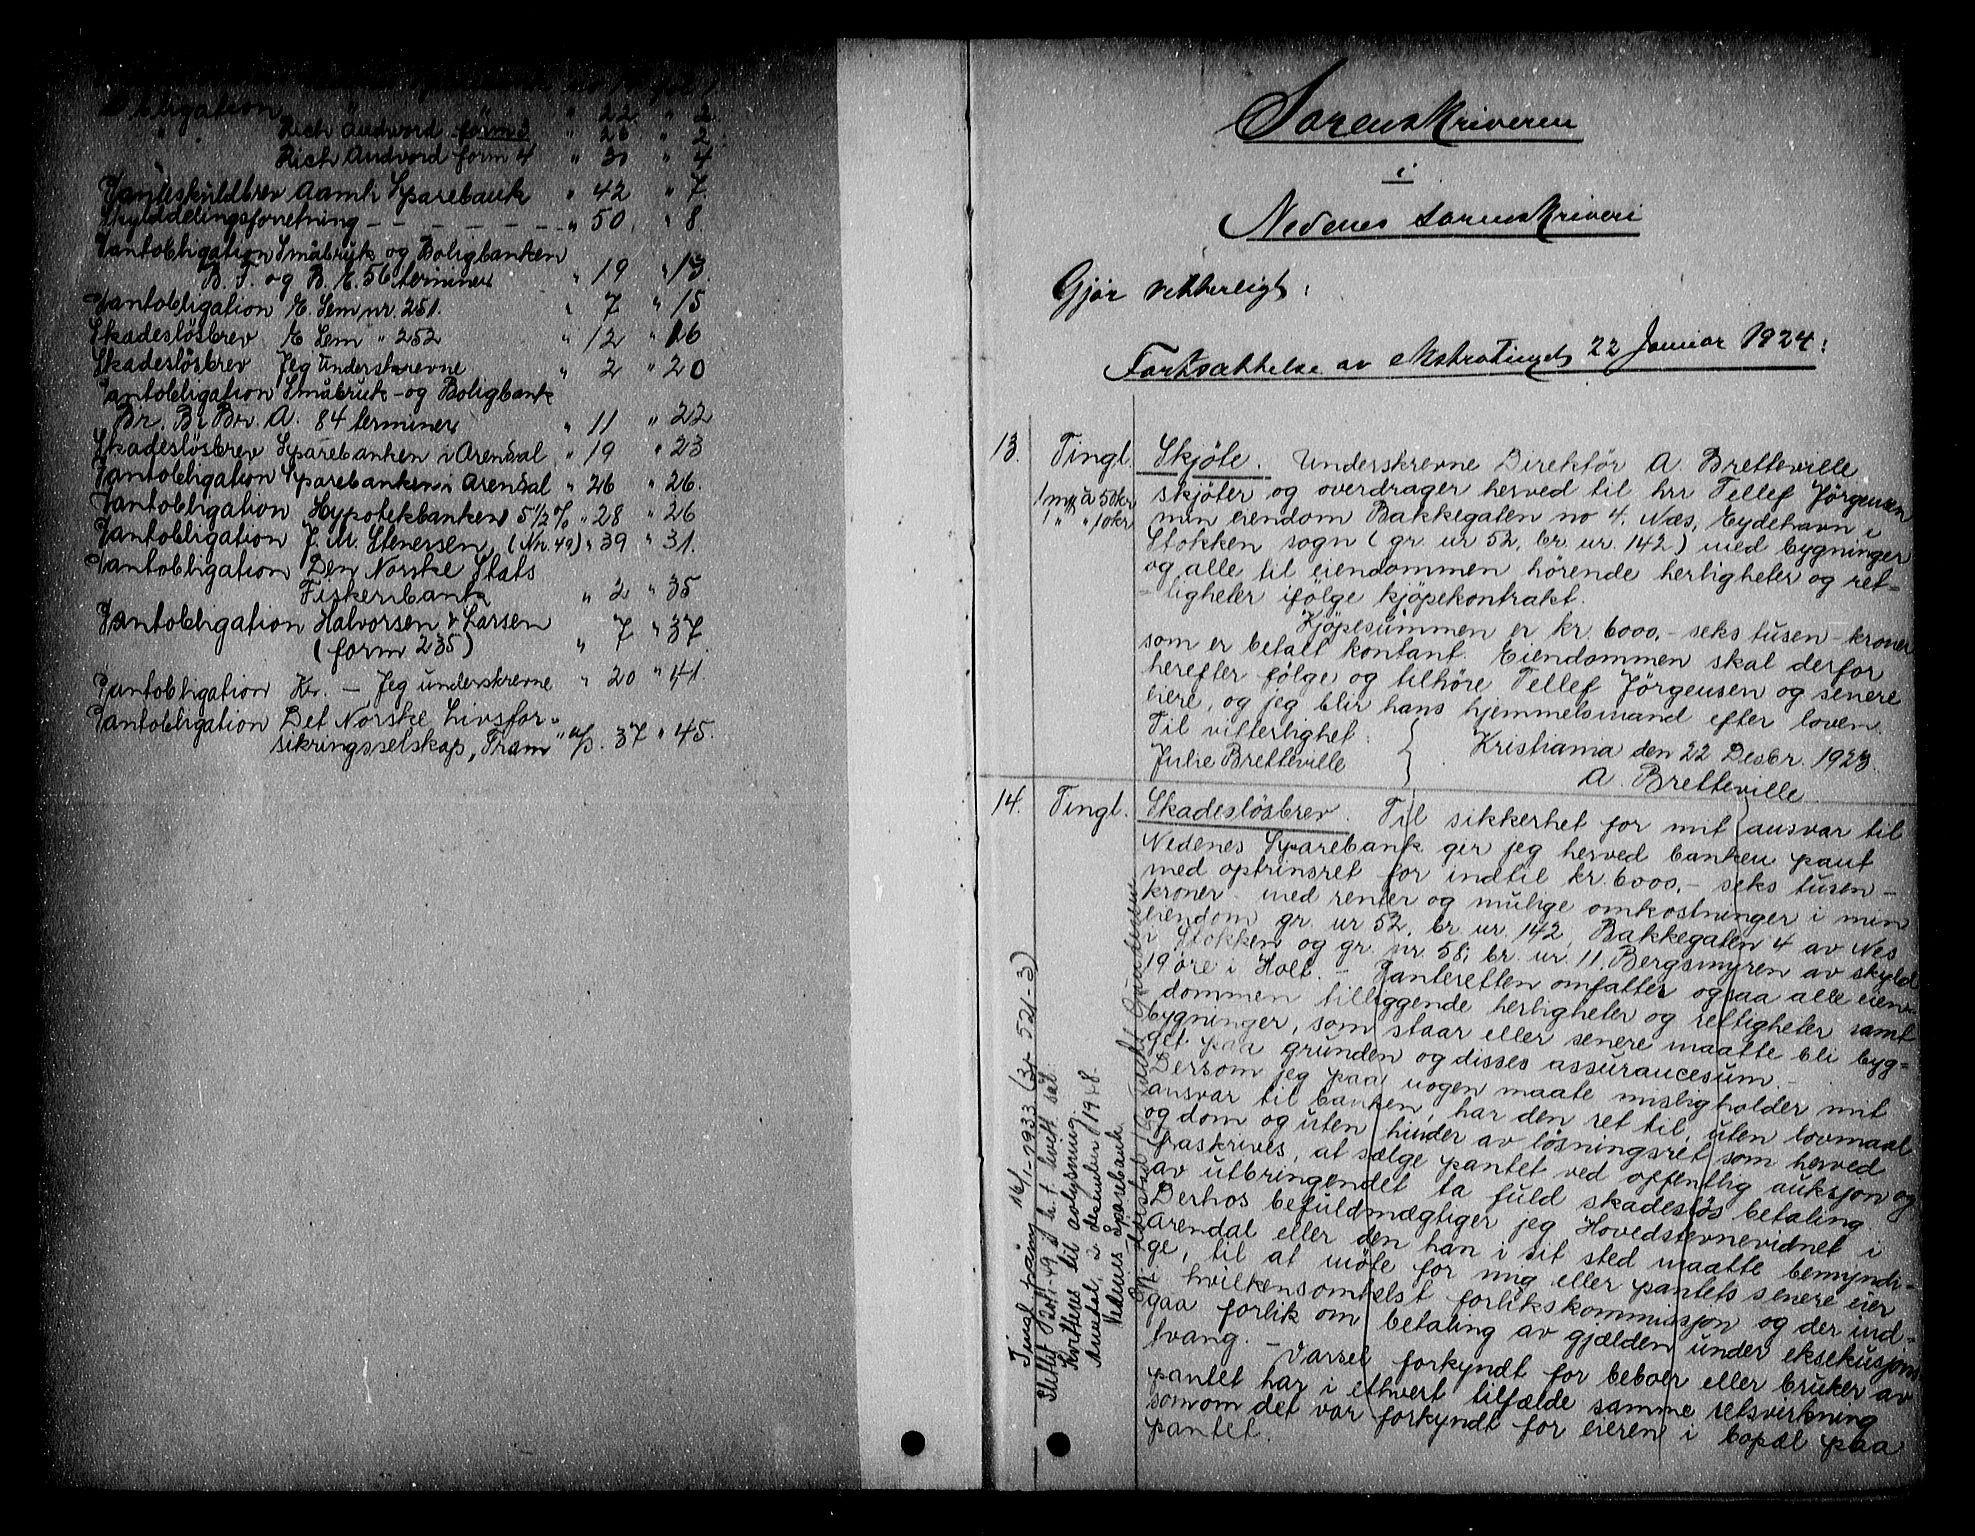 Obligation " " " 22 " 2
" " Rich Andvord form 3 " 26 " 2
Rich Andvord form 4 " 30 " 4
Panteskyldbrev Aamli Sparebank " 42 " 7.
Skylddelingsforretning - - - - - - - " 50, " 8.
Pantobligation Småbruk og Boligbanken
B. F. og B. E. 56 terminer " 19 " 13
Pantobligation E. Sem nr. 251. " 7 " 15
Skadesløsbrev E Sem " 252 " 12 " 16
Skadesløsbrev Jeg Underskrevne " 2 " 20
Pantobligation Småbruk- og Boligbank
Br. Br Br. A. 84 terminer " 11 " 22
Skadesløsbrev Sparebanken i Arendal " 19 " 23
Pantobligation Sparebanken i Arendal " 26 " 26.
Pantobligation Hypotekbanken 5 1/2 % " 28 " 26
Pantobligation J. M. Stenersen (Nr. 49) " 39 " 31.
Pantobligation Den Norske Stats
Fiskeribank " 2 " 35
Pantobligation Halvorsen & Larsen
(form 235) " 7 " 37
Pantobligation Kr. - Jeg underskrevne " 20 " 41.
Pantobligation Det Norske Livsfor-
sikringsselskap, Fram " 37 " 45.
Sorenskriveren
i
Nedenes sorenskriveri
Gjør vitterligt:
Fortsættelse av ekstratinget 22 Januar 1924:
13. Tingl. Skjøte. Underskrevne Direktør A. Bretteville
1 mrk à 50 kr skjøter og overdrager herved til hrr Tellef Jörgensen
1 " " 10 kr min eiendom Bakkegaten no 4, Næs, Eydehavn i
Stokken sogn (gr. nr 52, br. nr. 142) med bygninger
og alle til eiendommen hørende herligheter og ret-
-tigheter ifølge kjøpekontrakt.
Kjøpesummen er kr. 6000,- seks tusen - kroner
som er betalt kontant. Eiendommen skal derfor
herefter følge og tilhøre Tellef Jörgensen og senere
eiere, og jeg blir hans hjemmelsmand efter loven.
Til vitterlighet: Kristiania den 22 Desbr. 1923.
Julie Bretteville A. Bretteville.
14. Tingl. Skadesløsbrev. Til sikkerhet for mit ansvar til
Nedenes Sparebank gir jeg herved banken pant
med optrinsret for indtil kr. 6000,- seks tusen -
kroner - med renter og mulige omkostninger i min
eiendom gr. nr 52, br. nr. 142, Bakkegaten 4 av Nes
i Stokken og gr. nr. 58, br. nr. 11. Bergsmyren av skyld
19 øre i Holt. - Panteretten omfatter ogsaa alle eien-
dommen tilliggende herligheter og rettigheter samt
bygninger, som staar eller senere maatte bli byg-
get paa grunden og disses assurancesum. -
Dersom jeg paa nogen maate misligholder mit
ansvar til banken, har den ret til, uten lovmaal
og dom og uten hinder av løsningsret, som herved
fraskrives, at sælge pantet ved offentlig auksjon og
av utbringendet ta fuld skadesløs betaling.
Derhos befuldmægtiger jeg Hovedstevnevidnet i
Arendal eller den han i sit sted maatte bemyndi-
ge, til at møte for mig eller pantets senere eier
i hvilkensomhelst forlikskommissjon og der ind-
gaa forlik om betaling av gjælden under eksekusjons
tvang. - Varsel forkyndt for beboer eller bruker av
pantet har i ethvert tilfælde samme retsvirkning
som om det var forkyndt for eieren i bopæl paa
pantet.
Tingl. påtegn 16/1-1933 (3r 521-3)
Slettet 20/1-49 h.t. kvitt. såt.
Kvitteres til avlysning.
Arendal, 2 desember 1948.
Nedenes Sparebank.